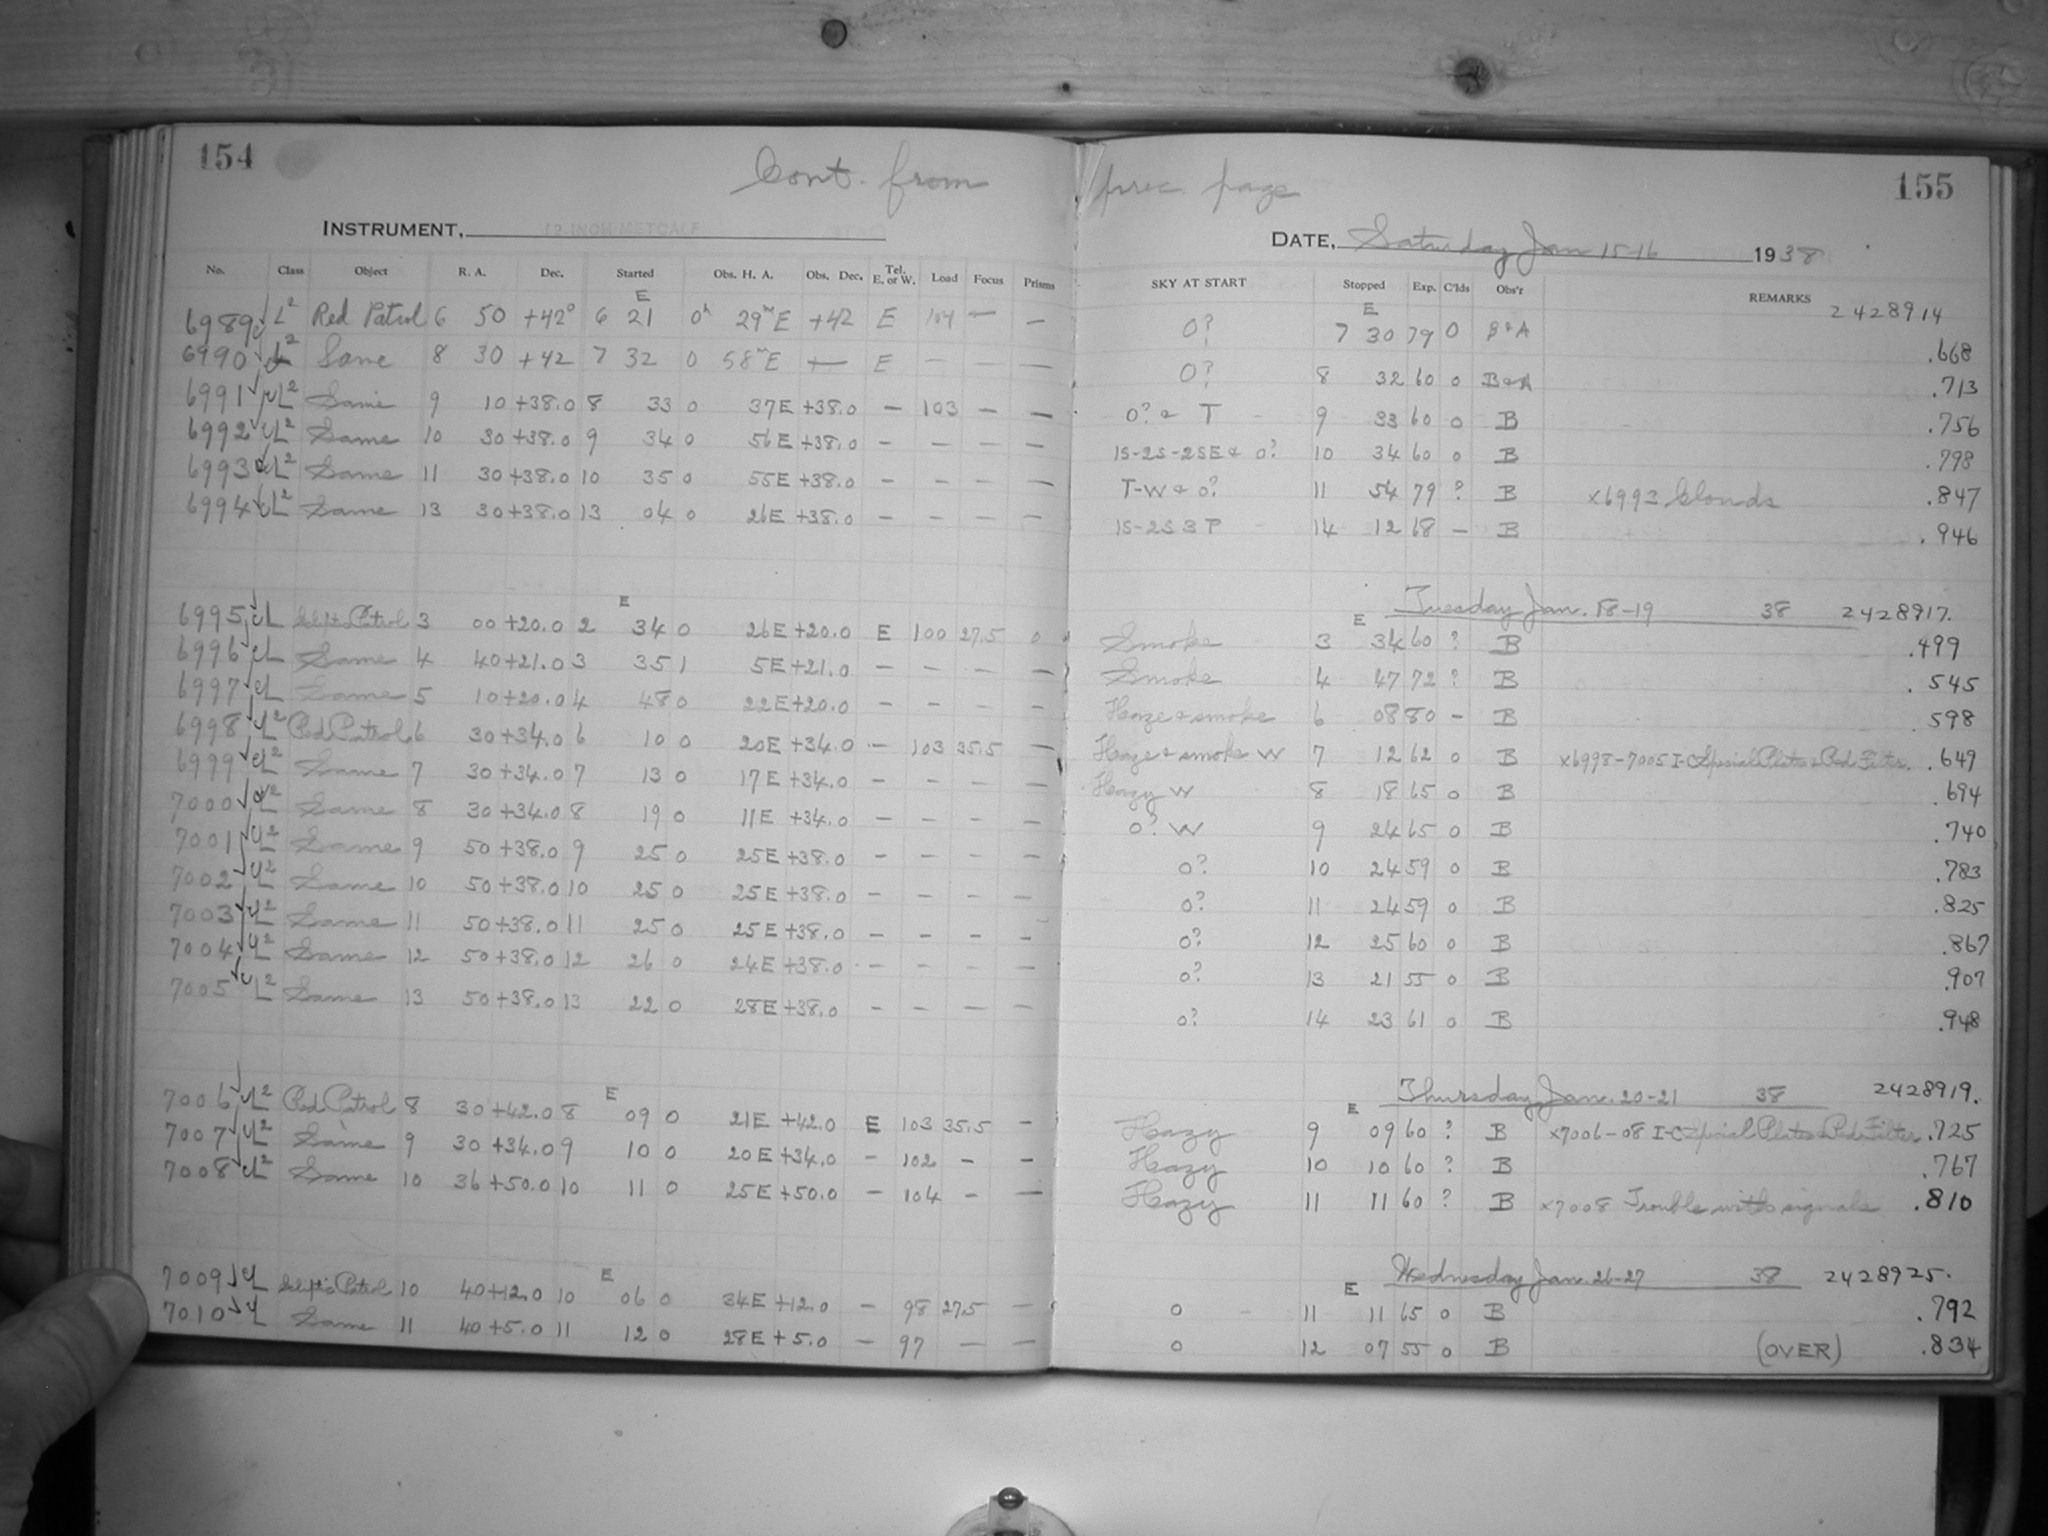 154
Cont. from prec. page
155
INSTRUMENT, 12-INCH METCALF
DATE, Saturday Jan 15-16 1938
No. Class Object R. A. Dec. Started Obs. H. A. Obs. Dec. Tel. E. or W. Load Focus Prisms SKY AT START Stopped Exp. C'lds Obs'r REMARKS
E E 2428914
6989 L² Red Patrol 6 50 +42° 6 21 0ʰ 29ᵐE +42 E 104 — — 0? 7 30 79 0 B+A .668
6990 L² Same 8 30 +42 7 32 0 58ᵐE — E — — — 0? 8 32 60 0 B&A .713
6991 L² Same 9 10 +38.0 8 33 0 37E +38.0 — 103 — — 0? & T 9 33 60 0 B .756
6992 L² Same 10 30 +38.0 9 34 0 56E +38.0 — — — — 1S-2S-2SE & 0? 10 34 60 0 B .798
6993 L² Same 11 30 +38.0 10 35 0 55E +38.0 — — — — T-W & 0? 11 54 79 ? B x6993 Clouds .847
6994 L² Same 13 30 +38.0 13 04 0 26E +38.0 — — — — 1S-2S 3P 14 12 68 — B .946
E E Tuesday Jan. 18-19 38 2428917.
6995 L Patrol 3 00 +20.0 2 34 0 26E +20.0 E 100 27.5 0 Smoke 3 34 60 ? B .499
6996 L Same 4 40 +21.0 3 35 1 5E +21.0 — — — — Smoke 4 47 72 ? B .545
6997 L Same 5 10 +20.0 4 48 0 22E +20.0 — — — — Haze & smoke 6 08 80 — B .598
6998 L² Red Patrol 6 30 +34.0 6 10 0 20E +34.0 — 103 35.5 — Haze & smoke W 7 12 62 0 B x6998-7005 I-C Special Plates & Red Filter. .649
6999 L² Same 7 30 +34.0 7 13 0 17E +34.0 — — — — Hazy W 8 18 65 0 B .694
7000 L² Same 8 30 +34.0 8 19 0 11E +34.0 — — — — 0? W 9 24 65 0 B .740
7001 L² Same 9 50 +38.0 9 25 0 25E +38.0 — — — — 0? 10 24 59 0 B .783
7002 L² Same 10 50 +38.0 10 25 0 25E +38.0 — — — — 0? 11 24 59 0 B .825
7003 L² Same 11 50 +38.0 11 25 0 25E +38.0 — — — — 0? 12 25 60 0 B .867
7004 L² Same 12 50 +38.0 12 26 0 24E +38.0 — — — — 0? 13 21 55 0 B .907
7005 L² Same 13 50 +38.0 13 22 0 28E +38.0 — — — — 0? 14 23 61 0 B .948
E E Thursday Jan. 20-21 38 2428919.
7006 L² Red Patrol 8 30 +42.0 8 09 0 21E +42.0 E 103 35.5 — Hazy 9 09 60 ? B x7006-08 I-C Special Plates & Red Filter .725
7007 L² Same 9 30 +34.0 9 10 0 20E +34.0 — 102 — — Hazy 10 10 60 ? B .767
7008 L² Same 10 36 +50.0 10 11 0 25E +50.0 — 104 — — Hazy 11 11 60 ? B x7008 Trouble with signals .810
E E Wednesday Jan. 26-27 38 2428925.
7009 L Patrol 10 40 +12.0 10 06 0 34E +12.0 — 98 27.5 — 0 11 11 65 0 B .792
7010 L Same 11 40 +5.0 11 12 0 28E +5.0 — 97 — — 0 12 07 55 0 B (OVER) .834